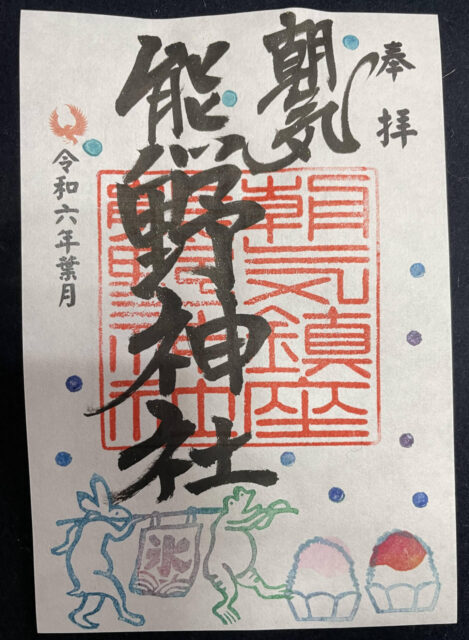 奉拝
朝気
熊野神社
朝気鎮座
熊野神社
令和六年葉月
氷